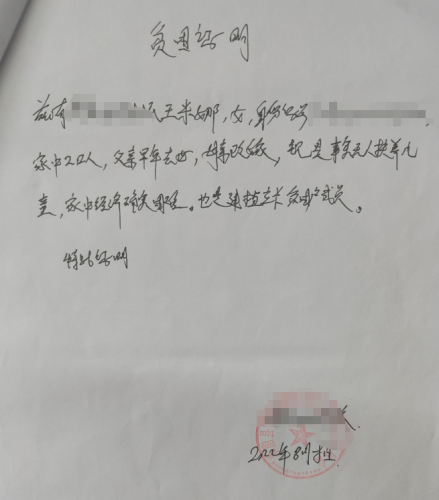 贫困证明
兹有 民王米娜,女,身份证号
家中2口人,父亲早年去世,母亲改嫁,现是事实无人抚养儿
童,家中经济确实困难。也是建档立卡贫困户成员。
特此证明
2022年8月